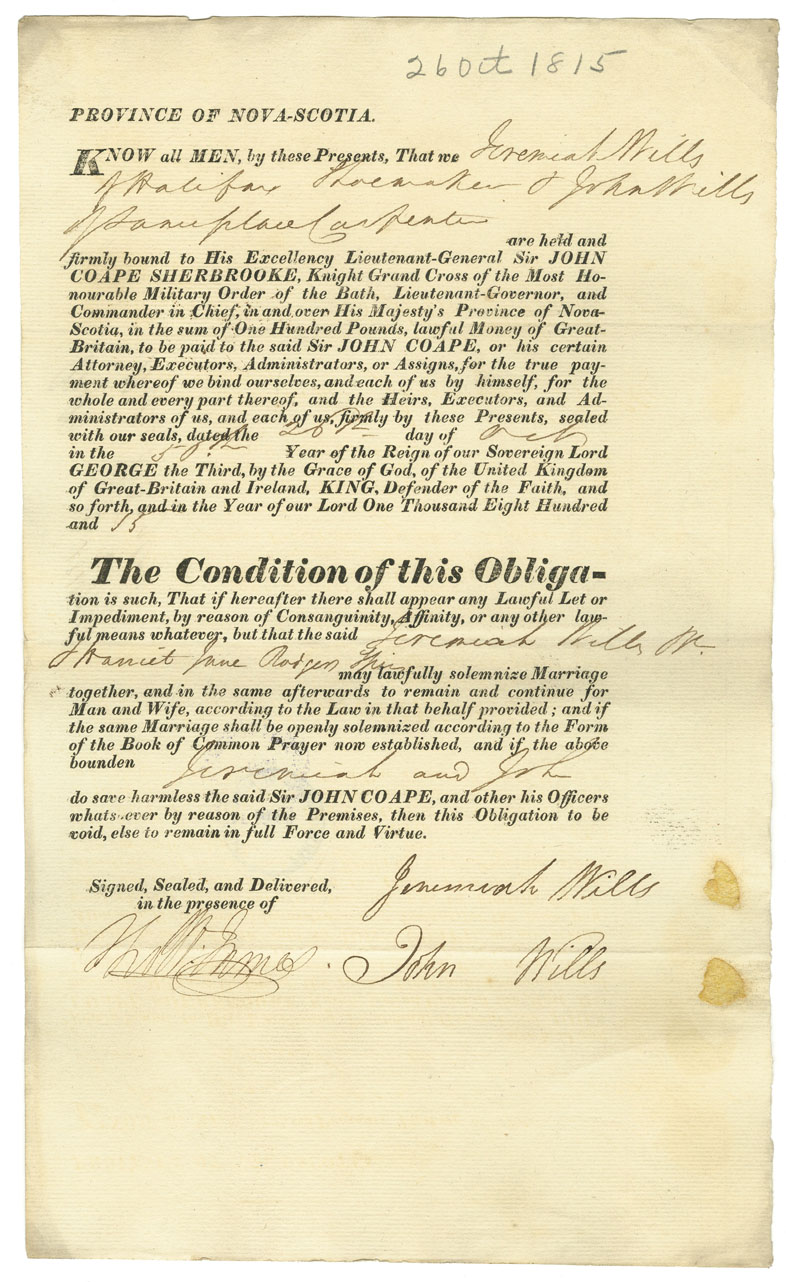 26 Oct 1815
PROVINCE OF NOVA-SCOTIA.
KNOW all MEN, by these Presents, That we Jeremiah Wills
of Halifax Shoemaker & John Wills
of same place Carpenter
are held and
firmly bound to His Excellency Lieutenant-General Sir JOHN
COAPE SHERBROOKE, Knight Grand Cross of the Most Ho-
nourable Military Order of the Bath, Lieutenant-Governor, and
Commander in Chief, in and over His Majesty's Province of Nova-
Scotia, in the sum of One Hundred Pounds, lawful Money of Great-
Britain, to be paid to the said Sir JOHN COAPE, or his certain
Attorney, Executors, Administrators, or Assigns, for the true pay-
ment whereof we bind ourselves, and each of us by himself, for the
whole and every part thereof, and the Heirs, Executors, and Ad-
ministrators of us, and each of us, firmly by these Presents, sealed
with our seals, dated the 26th day of Oct
in the Year of the Reign of our Sovereign Lord
GEORGE the Third, by the Grace of God, of the United Kingdom
of Great-Britain and Ireland, KING, Defender of the Faith, and
so forth, and in the Year of our Lord One Thousand Eight Hundred
and 15
The Condition of this Obliga-
tion is such, That if hereafter there shall appear any Lawful Let or
Impediment, by reason of Consanguinity, Affinity, or any other law-
ful means whatever, but that the said Jeremiah Wills
& Harriet Jane Rodgers
may lawfully solemnize Marriage
together, and in the same afterwards to remain and continue for
Man and Wife, according to the Law in that behalf provided; and if
the same Marriage shall be openly solemnized according to the Form
of the Book of Common Prayer now established, and if the above
bounden Jeremiah and John
do save harmless the said Sir JOHN COAPE, and other his Officers
whatsoever by reason of the Premises, then this Obligation to be
void, else to remain in full Force and Virtue.
Signed, Sealed, and Delivered,
in the presence of
Jeremiah Wills
John Wills